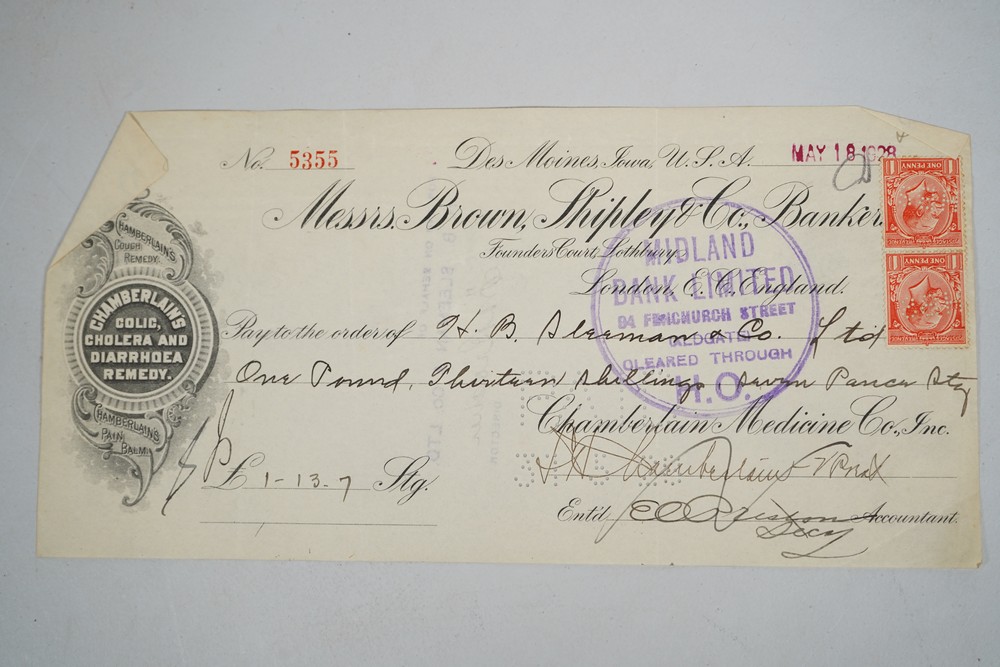 No. 5355 Des Moines, Iowa, U.S.A. MAY 18 1928
Messrs. Brown, Shipley & Co., Bankers
Founders Court, Lothbury
London, E.C., England.
Pay to the order of H. B. Sleeman & Co. Ltd
One Pound, Thirteen Shillings Seven Pence Stg
Chamberlain Medicine Co., Inc.
£ 1-13-7 Stg.
Chamberlain V Prest
Ent'd Accountant.
Secy
CHAMBERLAIN'S
COUGH
REMEDY.
CHAMBERLAIN'S
COLIC,
CHOLERA AND
DIARRHOEA
REMEDY.
CHAMBERLAIN'S
PAIN
BALM
MIDLAND
BANK LIMITED
94 FENCHURCH STREET
ALDGATE
CLEARED THROUGH
H.O.
ONE PENNY
ONE PENNY